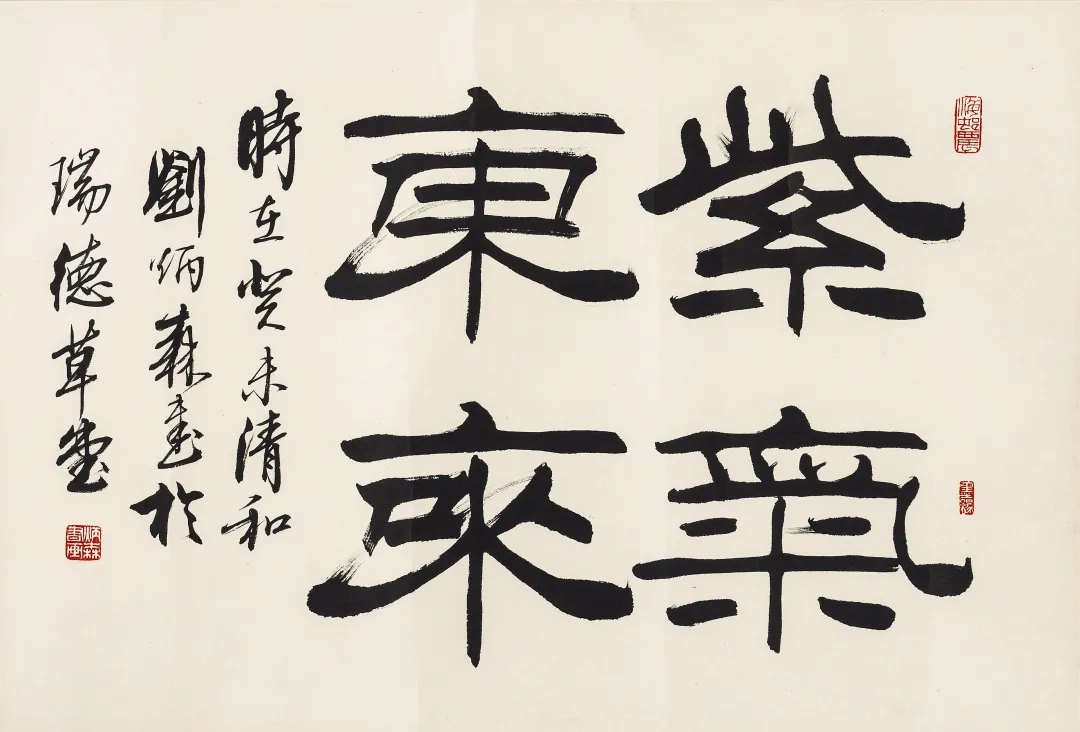 紫氣
東來
時在癸未清和
劉炳森書於
瑞德草堂
炳森書画